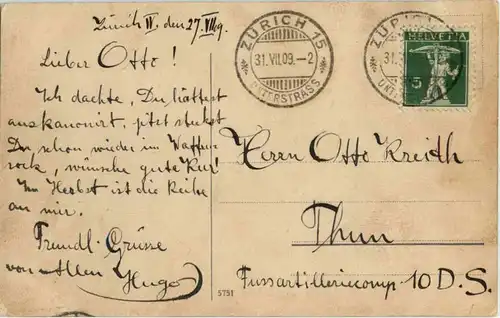 Zürich IV, den 27. VII 09.
Lieber Otto!
Ich dachte, Du hättest
auskanonirt, jetzt steckst
Du schon wieder im Waffen-
rock, wünsche gute Kur!
Im Herbst ist die Reihe
an mir.
Freundl. Grüsse
von Allen Hugo
ZÜRICH 15
31.VII.09.-2
ZÜRICH
31.
HELVETIA
5
Herrn Otto Kreith
Thun
Fussartilleriecomp. 10 D.S.
5751